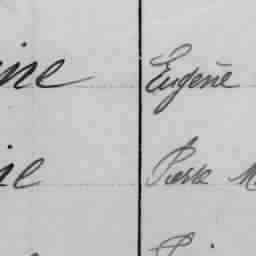 ine Eugène
ie Pierre M